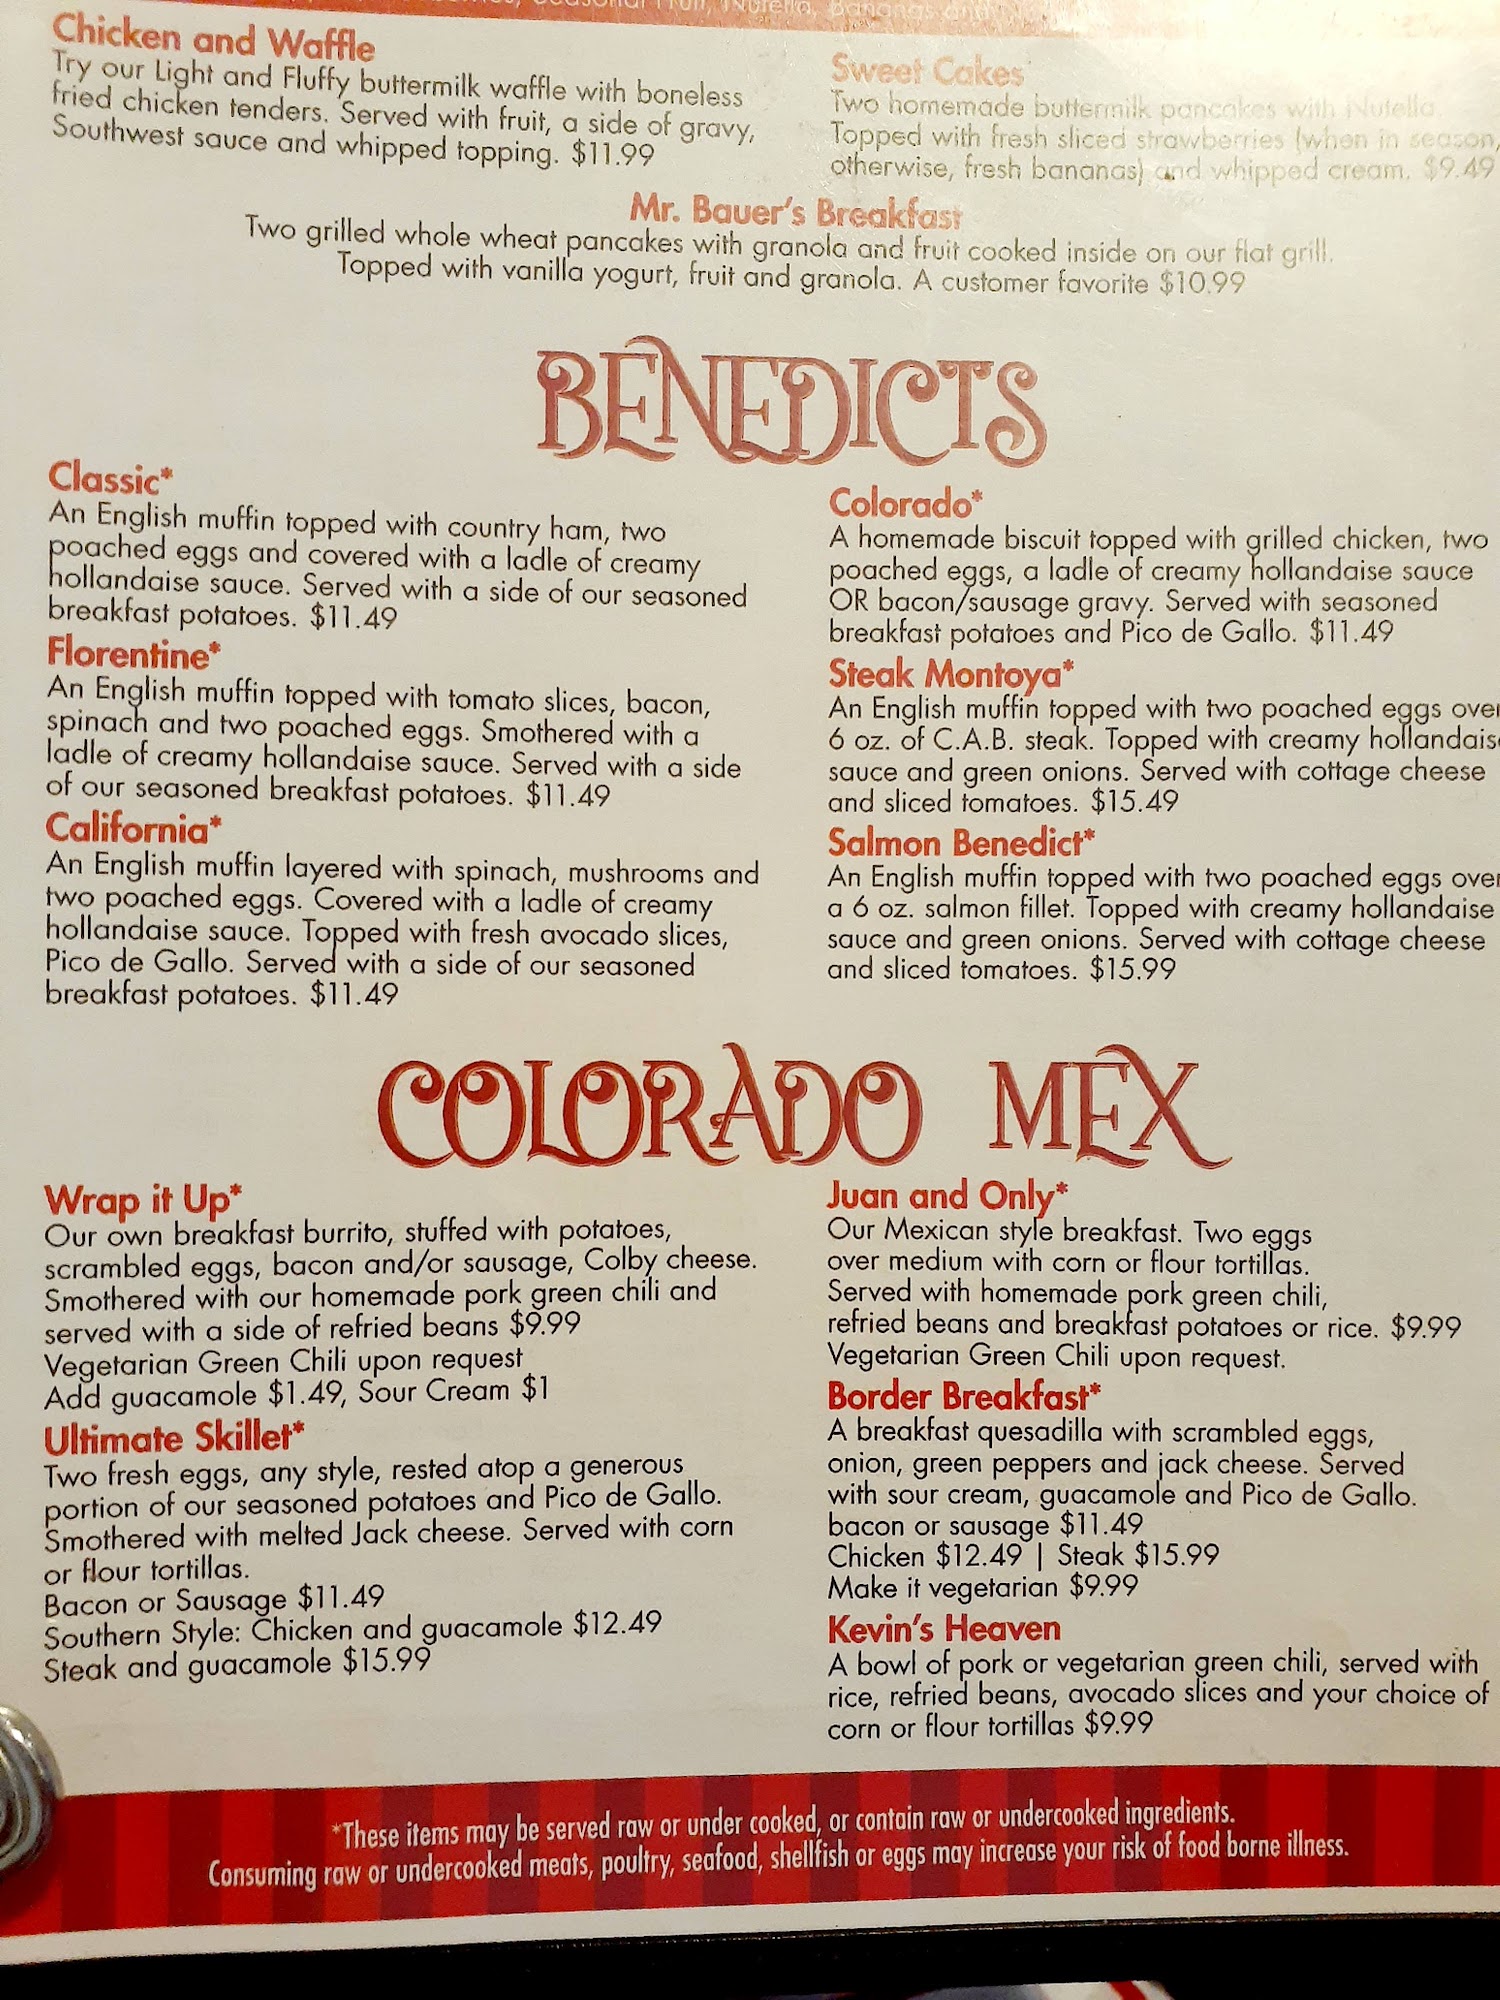 Seasonal Fruit, Nutella, Bananas and
Chicken and Waffle
Try our Light and Fluffy buttermilk waffle with boneless
fried chicken tenders. Served with fruit, a side of gravy,
Southwest sauce and whipped topping. $11.99
Sweet Cakes
Two homemade buttermilk pancakes with Nutella.
Topped with fresh sliced strawberries (when in season,
otherwise, fresh bananas) and whipped cream. $9.49
Mr. Bauer's Breakfast
Two grilled whole wheat pancakes with granola and fruit cooked inside on our flat grill.
Topped with vanilla yogurt, fruit and granola. A customer favorite $10.99
BENEDICTS
Classic*
An English muffin topped with country ham, two
poached eggs and covered with a ladle of creamy
hollandaise sauce. Served with a side of our seasoned
breakfast potatoes. $11.49
Florentine*
An English muffin topped with tomato slices, bacon,
spinach and two poached eggs. Smothered with a
ladle of creamy hollandaise sauce. Served with a side
of our seasoned breakfast potatoes. $11.49
California*
An English muffin layered with spinach, mushrooms and
two poached eggs. Covered with a ladle of creamy
hollandaise sauce. Topped with fresh avocado slices,
Pico de Gallo. Served with a side of our seasoned
breakfast potatoes. $11.49
Colorado*
A homemade biscuit topped with grilled chicken, two
poached eggs, a ladle of creamy hollandaise sauce
OR bacon/sausage gravy. Served with seasoned
breakfast potatoes and Pico de Gallo. $11.49
Steak Montoya*
An English muffin topped with two poached eggs over
6 oz. of C.A.B. steak. Topped with creamy hollandaise
sauce and green onions. Served with cottage cheese
and sliced tomatoes. $15.49
Salmon Benedict*
An English muffin topped with two poached eggs over
a 6 oz. salmon fillet. Topped with creamy hollandaise
sauce and green onions. Served with cottage cheese
and sliced tomatoes. $15.99
COLORADO MEX
Wrap it Up*
Our own breakfast burrito, stuffed with potatoes,
scrambled eggs, bacon and/or sausage, Colby cheese.
Smothered with our homemade pork green chili and
served with a side of refried beans $9.99
Vegetarian Green Chili upon request
Add guacamole $1.49, Sour Cream $1
Ultimate Skillet*
Two fresh eggs, any style, rested atop a generous
portion of our seasoned potatoes and Pico de Gallo.
Smothered with melted Jack cheese. Served with corn
or flour tortillas.
Bacon or Sausage $11.49
Southern Style: Chicken and guacamole $12.49
Steak and guacamole $15.99
Juan and Only*
Our Mexican style breakfast. Two eggs
over medium with corn or flour tortillas.
Served with homemade pork green chili,
refried beans and breakfast potatoes or rice. $9.99
Vegetarian Green Chili upon request.
Border Breakfast*
A breakfast quesadilla with scrambled eggs,
onion, green peppers and jack cheese. Served
with sour cream, guacamole and Pico de Gallo.
bacon or sausage $11.49
Chicken $12.49 | Steak $15.99
Make it vegetarian $9.99
Kevin's Heaven
A bowl of pork or vegetarian green chili, served with
rice, refried beans, avocado slices and your choice of
corn or flour tortillas $9.99
*These items may be served raw or under cooked, or contain raw or undercooked ingredients.
Consuming raw or undercooked meats, poultry, seafood, shellfish or eggs may increase your risk of food borne illness.